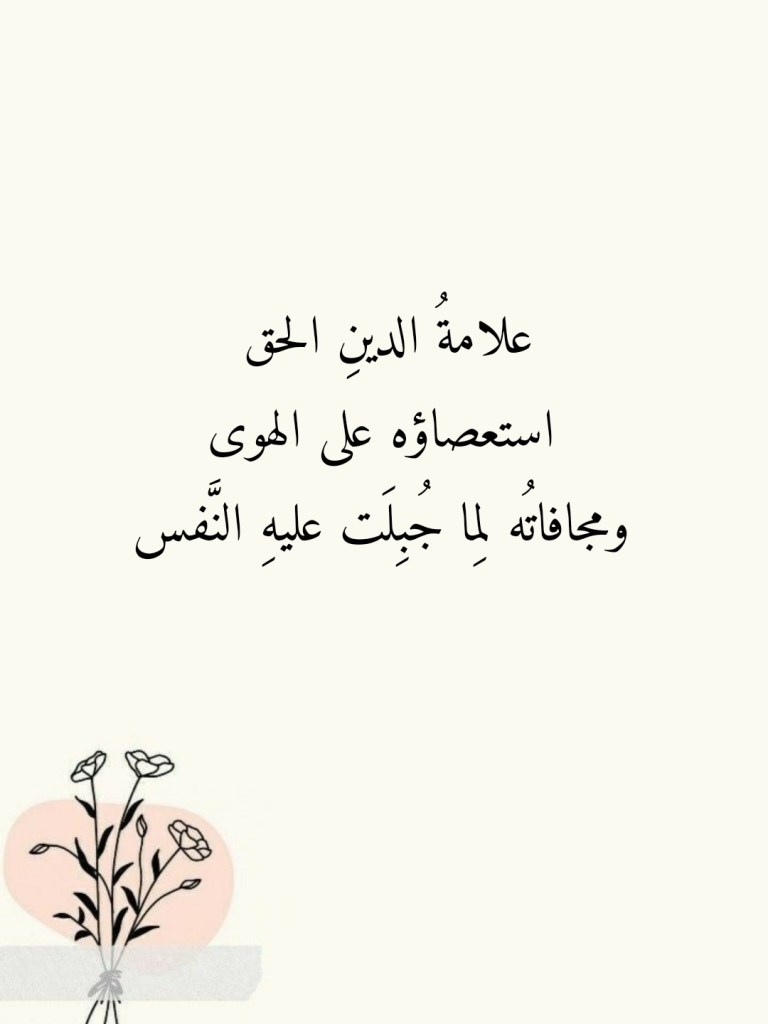 علامةُ الدينِ الحق
استعصاؤه على الهوى
ومجافاتُه لِما جُبِلَت عليهِ النَّفس